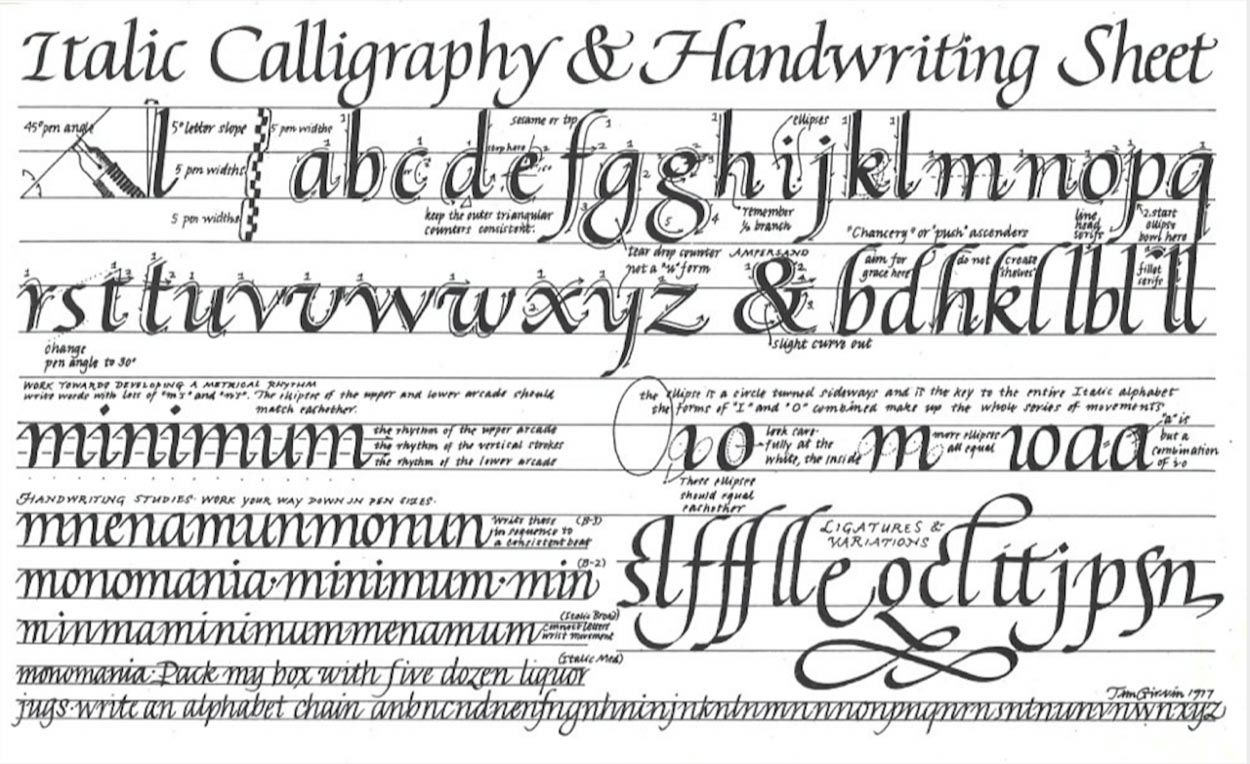 Italic Calligraphy & Handwriting Sheet
45° pen angle
l
5° letter slope
5 pen widths
5 pen widths
5 pen widths
sesame or top
stop here
ellipses
a b c d e f g g h i j k l m n o p q
keep the outer triangular
counters consistent.
remember
½ branch
"Chancery" or "push" ascenders
line,
head
serifs
2. start
ellipse
bowl here
tear drop counter
not a "u" form
AMPERSAND
aim for
grace here
do not create
"shelves"
fillet
serifs
r s t t u v v w w x y z & b d h k l l b l l l
change
pen angle to 30°
slight curve out
WORK TOWARDS DEVELOPING A METRICAL RHYTHM
write words with lots of "m's" and "n's". The ellipses of the upper and lower arcade should
match eachother.
minimum
the rhythm of the upper arcade
the rhythm of the vertical strokes
the rhythm of the lower arcade
the ellipse is a circle turned sideways and is the key to the entire Italic alphabet
the forms of "I" and "O" combined make up the whole series of movements
ıo
look care-
fully at the
white, the inside
m
more ellipses
all equal
ıoaa
"a" is
but a
combination
of ıo
These ellipses
should equal
eachother
HANDWRITING STUDIES· WORK YOUR WAY DOWN IN PEN SIZES·
mnenamunmonun
Write these (B-3)
in sequence to
a consistent beat
monomania·minimum·min (B-2)
minmaminimummenamum
(Italic Broad)
connect letters
wrist movement
monomania·Pack my box with five dozen liquor
(Italic Med)
jugs·write an alphabet chain anbncndnenfngnhninjnknlnmnnnonpnqnrnsntnunvnwnxyz
LIGATURES &
VARIATIONS
Tim Girvin 1977